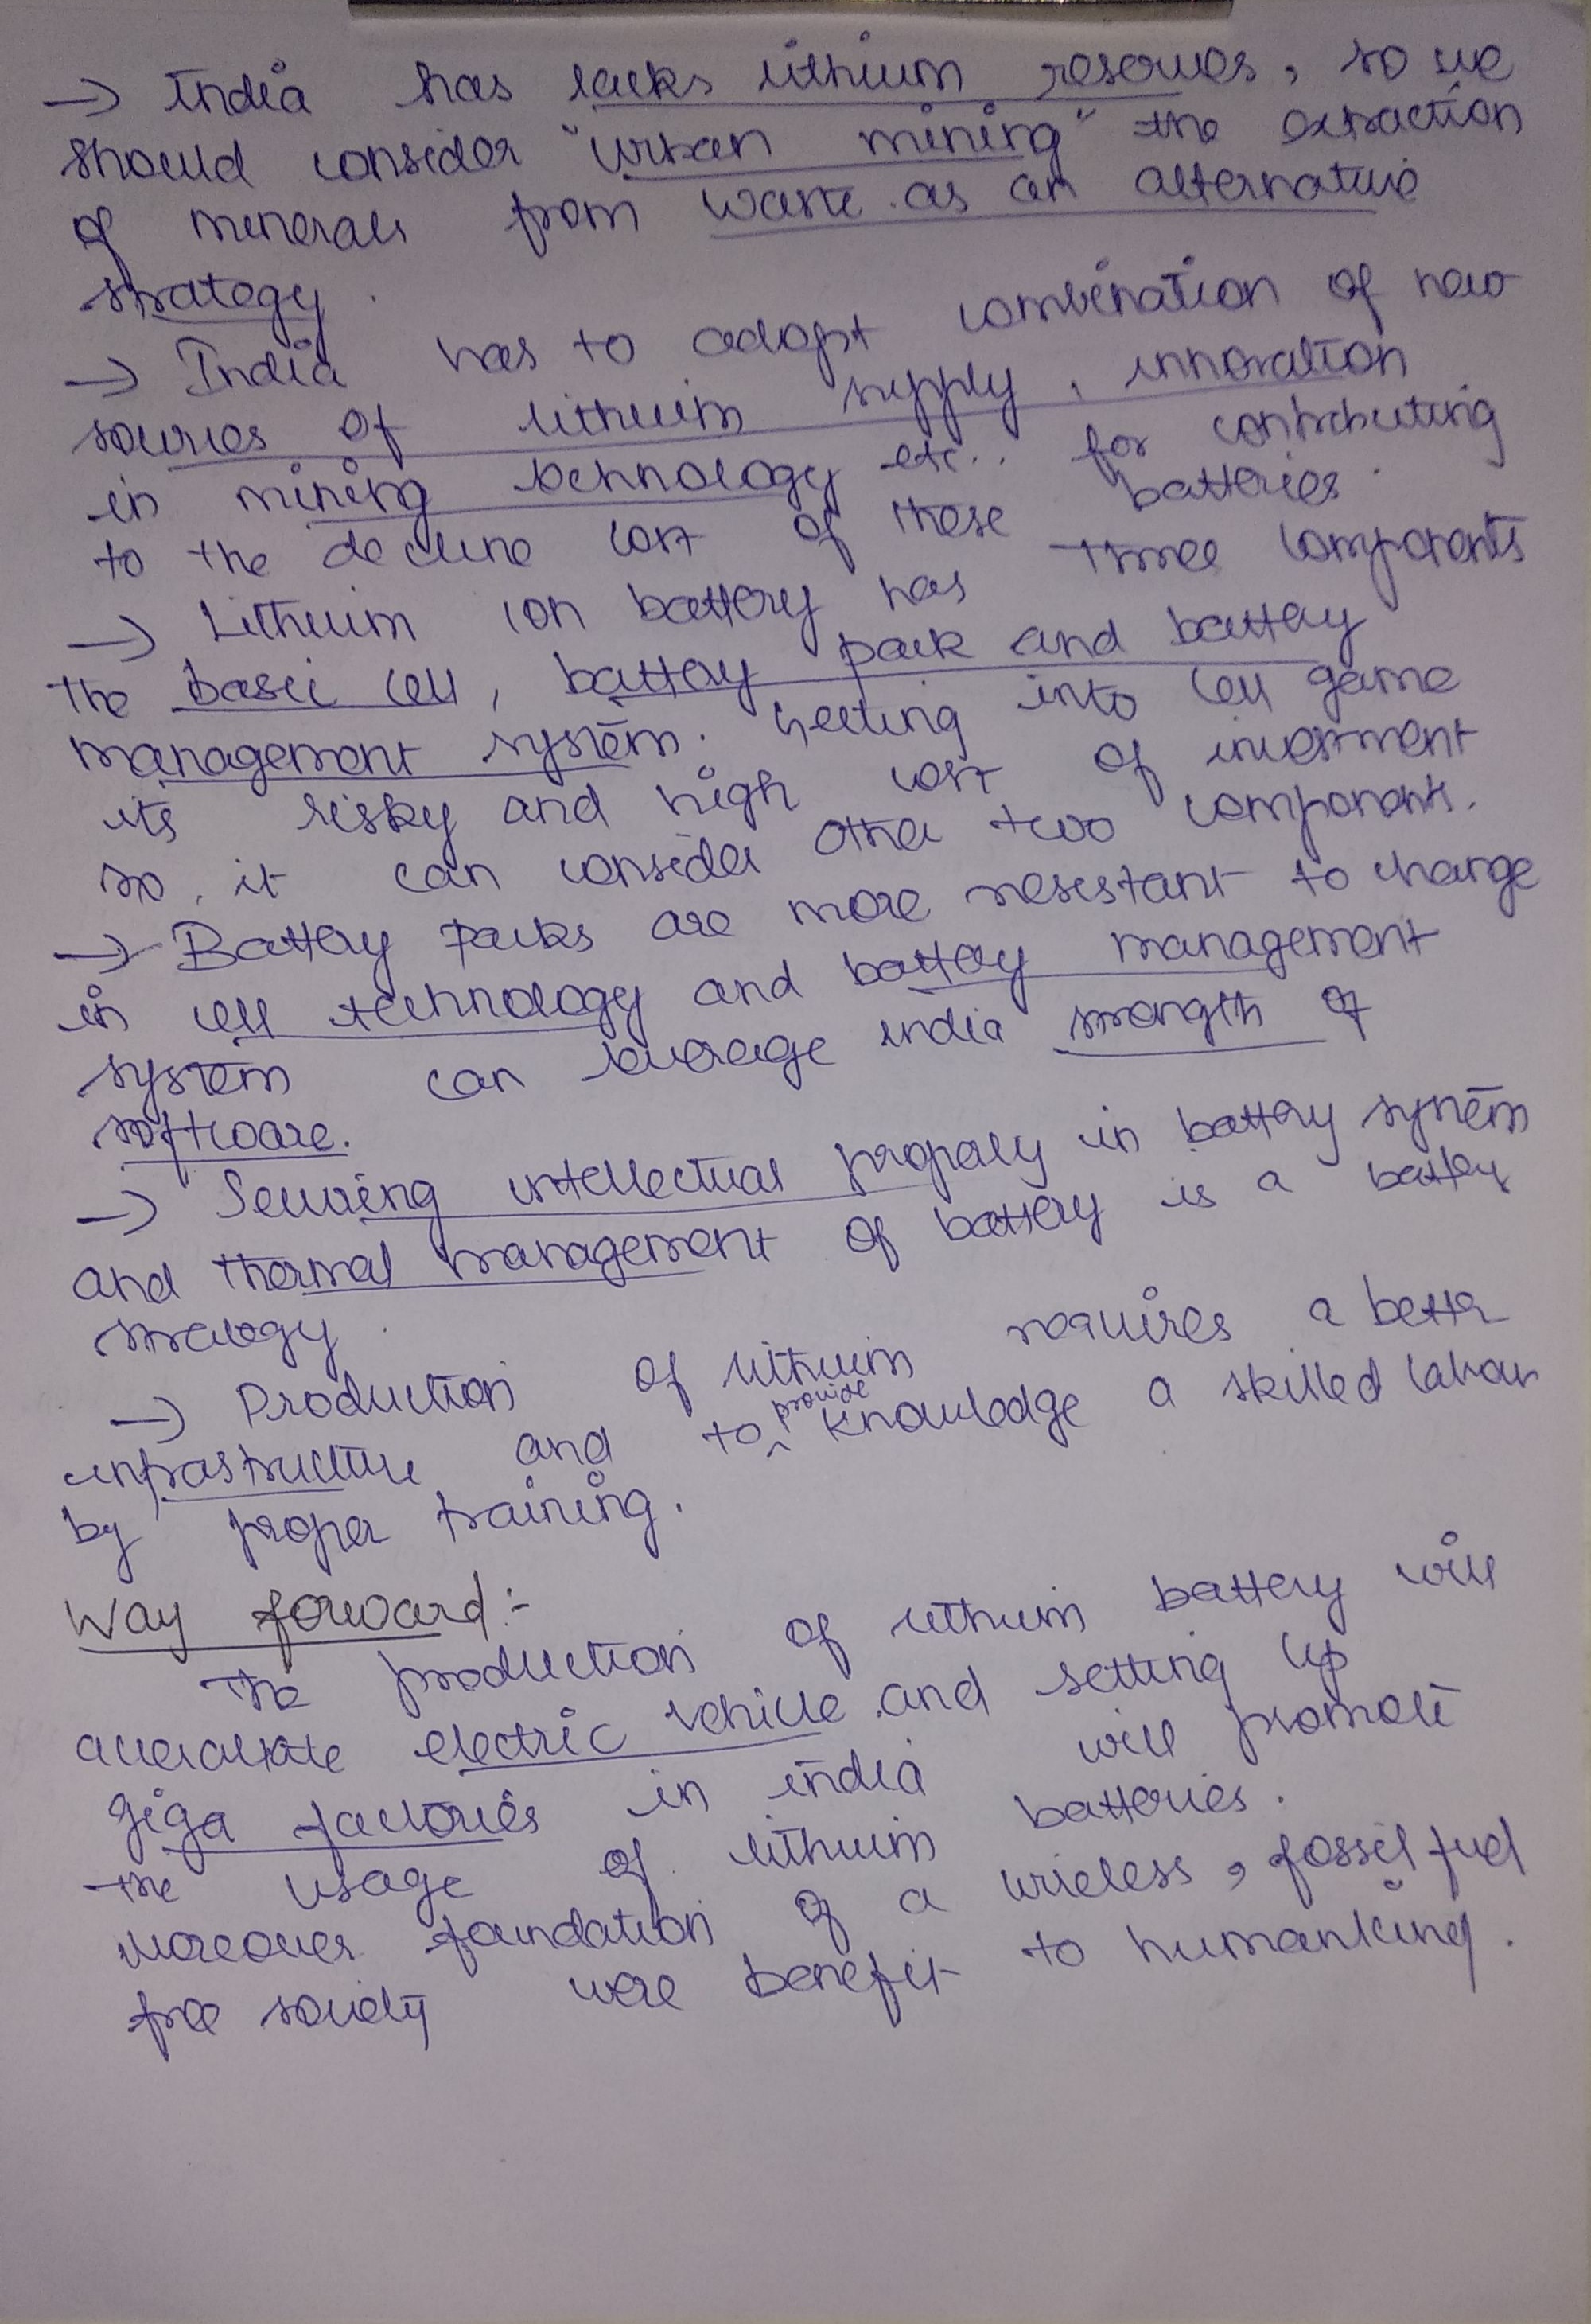 → India has lacks lithium reserves, so we
should consider "urban mining" the extraction
of minerals from waste as an alternative
strategy.
→ India has to adopt combination of new
sources of lithium supply, innovation
in mining technology etc.. for contributing
to the decline cost of these batteries.
→ Lithium ion battery has three components
the basic cell, battery pack and battery
management system. Getting into cell game
its risky and high cost of investment
so, it can consider other two components.
→ Battery packs are more resistant to change
in cell technology and battery management
system can leverage india strength of
software.
→ Securing intellectual property in battery system
and thermal management of battery is a battery
strategy.
→ Production of lithium requires a better
infrastructure and to provide knowledge a skilled labour
by proper training.
Way forward:-
The production of lithium battery will
electric vehicle and setting up
giga factories in india will promote
the usage of lithium batteries.
Moreover foundation of a wireless, fossil fuel
free society were benefit to humanking.